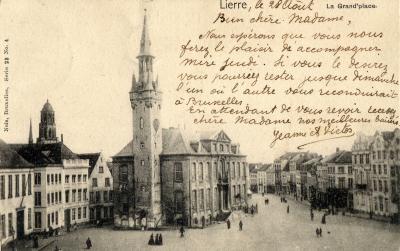 Lierre, le 28 Août
La Grand'place.
Bien chère Madame,
Nous espérons que vous nous
ferez le plaisir de accompagner
mire jeudi. Si vous le desirez
vous pourrez rester jusque demanche
l'un ou l'autre vous reconduirait
à Bruxelles.
En attendant de vous revoir recevez
chère Madame nos meilleurs
Nels, Bruxelles, Série 28 No. 4